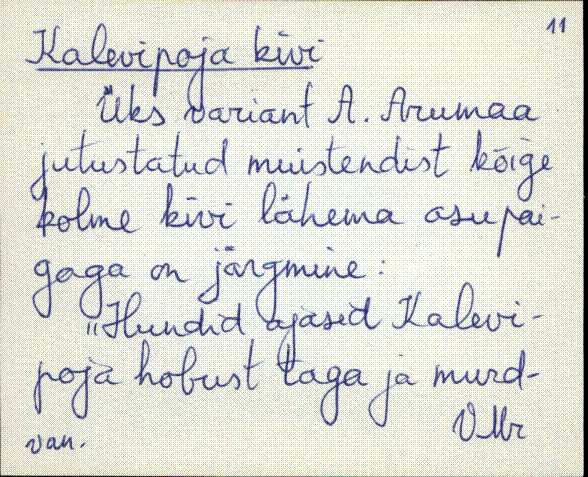 11
Kalevipoja kivi
Üks variant A. Arumaa
jutustatud muistendist kõige
kolme kivi lähema asupai-
gaga on järgmine:
"Hundid ajasid Kalevi-
poja hobust taga ja murd-
VMr
van.